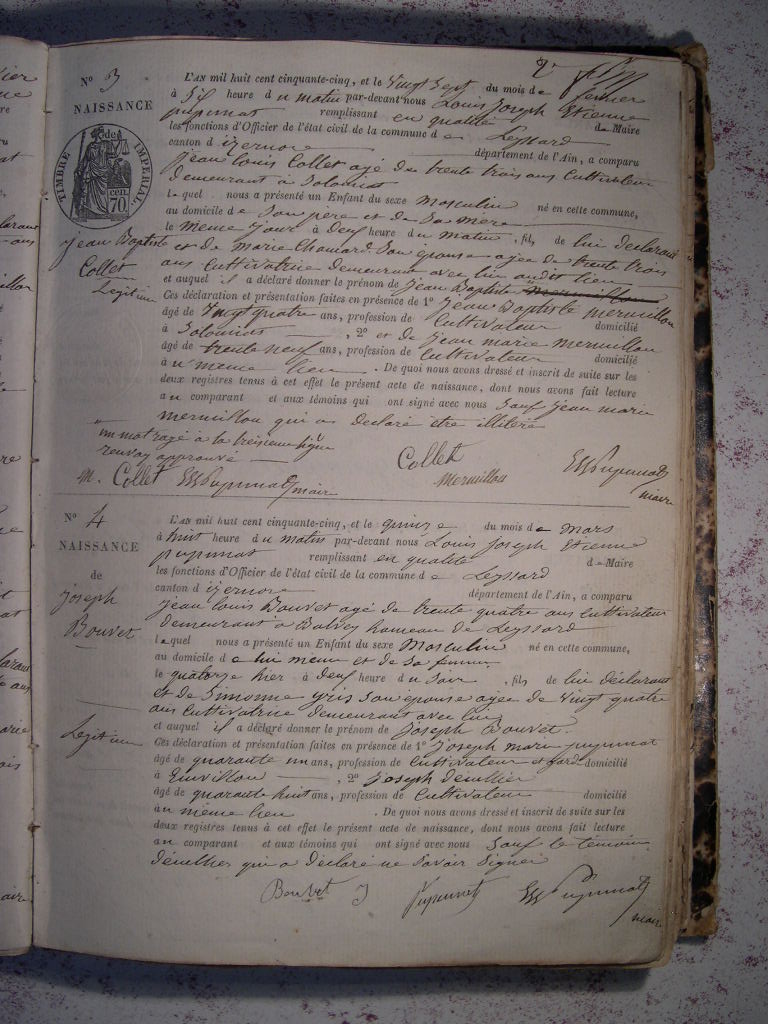 N° 3
NAISSANCE
de
TIMBRE IMPÉRIAL
70 cen.
Jean Baptiste
Collet
Legitime
L'AN mil huit cent cinquante-cinq, et le vingt sept du mois de fevrier
à six heure du matin par-devant nous Louis Joseph Etienne
pupunat remplissant en qualité de Maire
les fonctions d'Officier de l'état civil de la commune de Leyssard
canton d'izernore département de l'Ain, a comparu
jean Louis Collet agé de trente trois ans Cultivateur
demeurant à Solomiat
lequel nous a présenté un Enfant du sexe Masculin né en cette commune,
au domicile de Son pere et de Sa mere
le meme jour à deux heure du matin, fils de lui déclarant
et de Marie Chanard Son épouse agée de trente trois
ans Cultivatrice demeurant avec lui audit lieu
et auquel il a déclaré donner le prénom de jean Baptiste
Ces déclaration et présentation faites en présence de 1° jean Baptiste mermillon
âgé de vingt quatre ans, profession de Cultivateur domicilié
à Solomiat, 2° et de jean marie mermillon
âgé de trente neuf ans, profession de Cultivateur domicilié
au meme lieu. De quoi nous avons dressé et inscrit de suite sur les
deux registres tenus à cet effet le présent acte de naissance, dont nous avons fait lecture
au comparant et aux témoins qui ont signé avec nous Sauf jean marie
mermillon qui a déclaré etre illiteré
un mot rayé à la treisieme ligne
renvoy approuvé
Collet
Mermillon
pupunat maire
m. Collet pupunat maire
N° 4
NAISSANCE
de
joseph
Bouvet
Legitime
L'AN mil huit cent cinquante-cinq, et le quinze du mois de mars
à huit heure du matin par-devant nous Louis Joseph Etienne
pupunat remplissant en qualité de Maire
les fonctions d'Officier de l'état civil de la commune de Leyssard
canton d'izernore département de l'Ain, a comparu
jean Louis Bouvet agé de trente quatre ans Cultivateur
demeurant à Balvey hameau de Leyssard
lequel nous a présenté un Enfant du sexe Masculin né en cette commune,
au domicile de lui meme et de Sa femme
le quatorze hier à deux heure du Soir, fils de lui déclarant
et de Simonne gris Son épouse agée de vingt quatre
ans Cultivatrice demeurant avec lui
et auquel il a déclaré donner le prénom de joseph Bouvet.
Ces déclaration et présentation faites en présence de 1° joseph marie pupunat
âgé de quarante un ans, profession de Cultivateur et gard domicilié
à, 2° joseph
âgé de quarante huit ans, profession de Cultivateur domicilié
au même lieu. De quoi nous avons dressé et inscrit de suite sur les
deux registres tenus à cet effet le présent acte de naissance, dont nous avons fait lecture
au comparant et aux témoins qui ont signé avec nous Sauf le témoin
qui a déclaré ne Savoir Signer
Bouvet J pupunat pupunat
maire